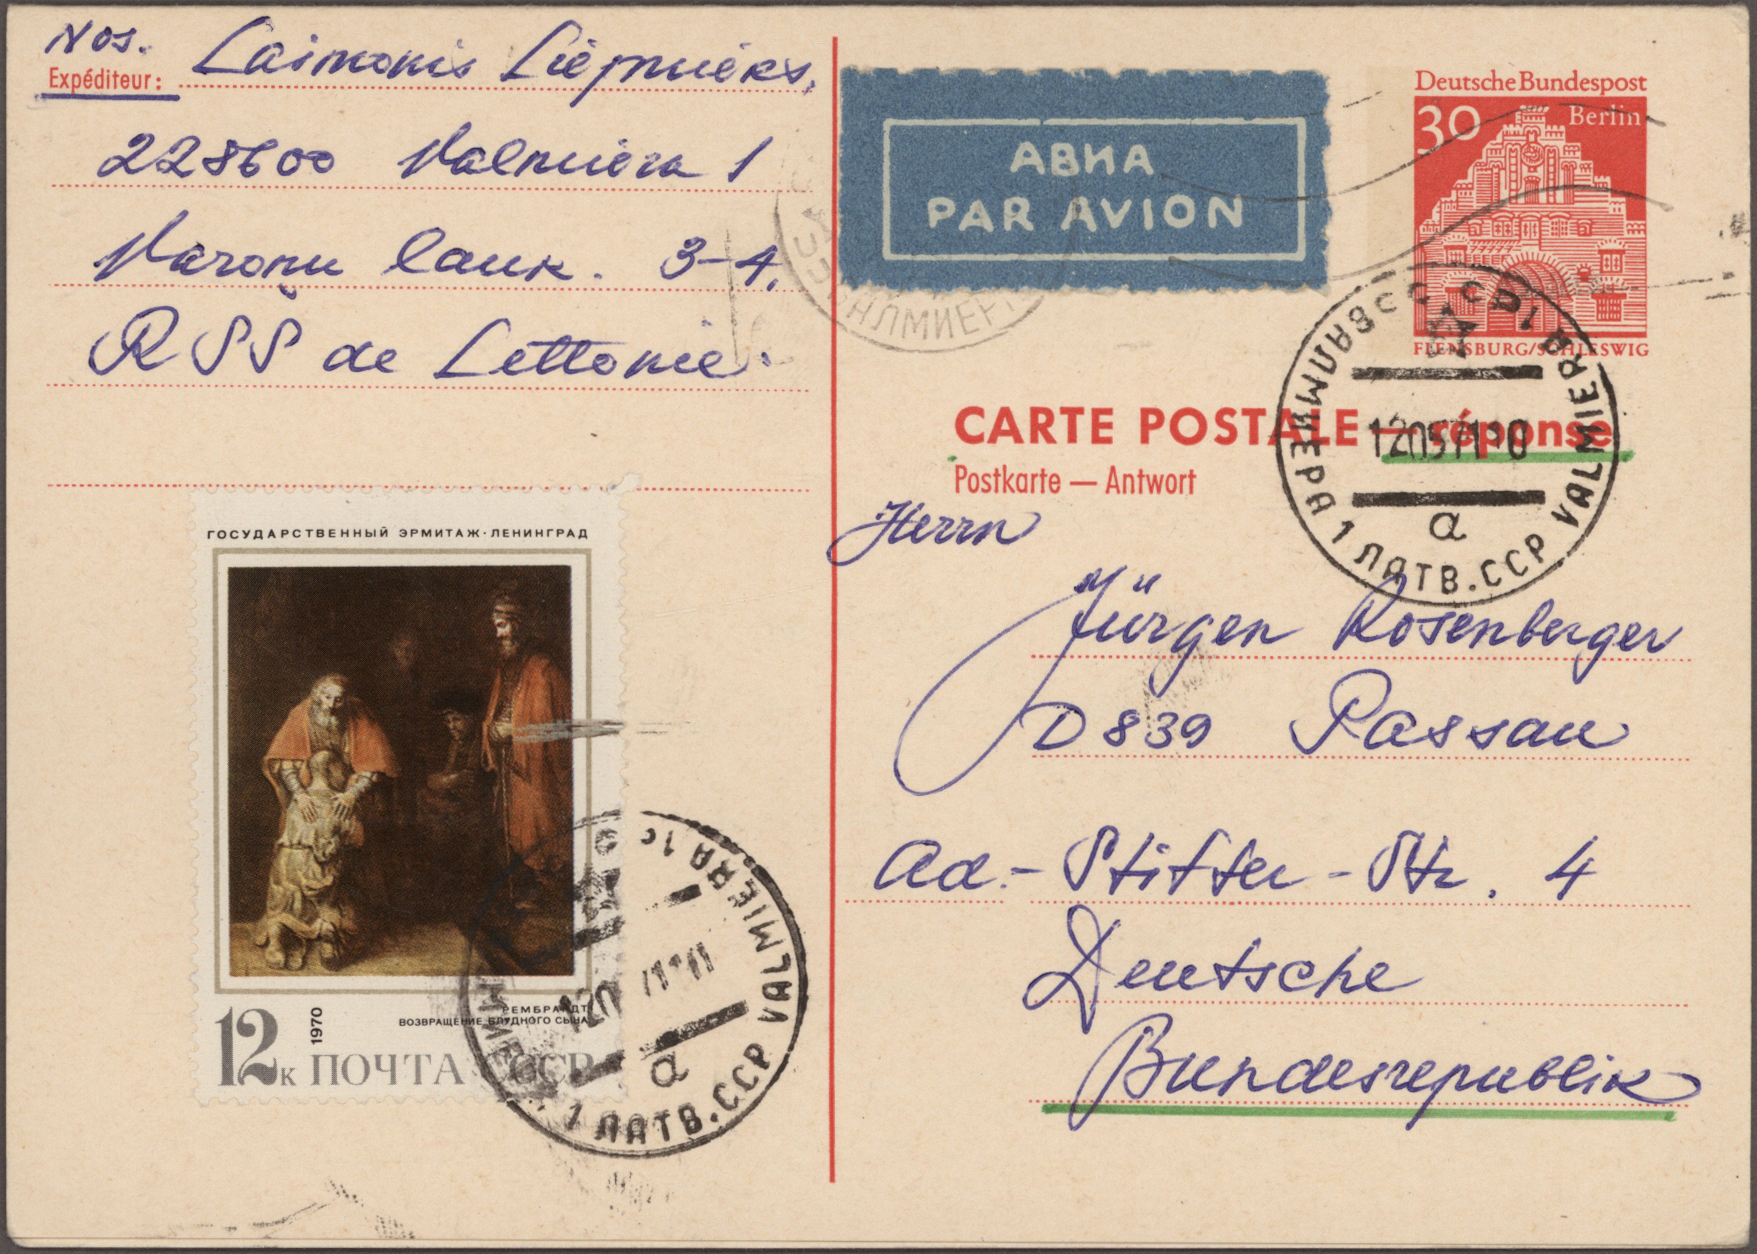 Nos. Laimonis Liepnieks,
Expéditeur:
228600 Valmiera 1
Varoņu lauk. 3-4,
RSS de Lettonie.
АВИА
PAR AVION
Deutsche Bundespost
30 Berlin
FLENSBURG/SCHLESWIG
CARTE POSTALE — réponse
Postkarte — Antwort
ВАЛМИЕРА 1 ЛАТВ.ССР VALMIERA 1
120571 10
а
Herrn
Jürgen Rosenberger
D 839 Passau
Ad.-Stifter-Str. 4
Deutsche
Bundesrepublik
ГОСУДАРСТВЕННЫЙ ЭРМИТАЖ·ЛЕНИНГРАД
РЕМБРАНДТ
ВОЗВРАЩЕНИЕ БЛУДНОГО СЫНА
1970
12к ПОЧТА СССР
1 ЛАТВ.ССР VALMIERA 1
а